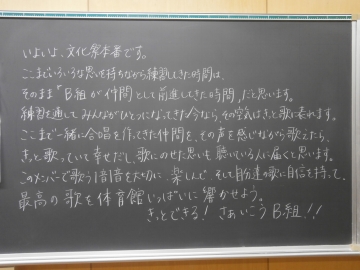 いよいよ、文化祭本番です。
ここまでいろいろな思いを持ちながら練習してきた時間は、
そのまま「B組が仲間として前進してきた時間」だと思います。
練習を通してみんながひとつになってきた今なら、その空気はきっと歌に表れます。
ここまで一緒に合唱を作ってきた仲間を、その声を感じながら歌えたら、
きっと歌っていて幸せだし、歌にのせた思いも聴いている人に届くと思います。
このメンバーで歌う1音1音を大切に、楽しんで、そして自分達の歌に自信を持って、
最高の歌を体育館いっぱいに響かせよう。
きっとできる! さぁいこうB組!!